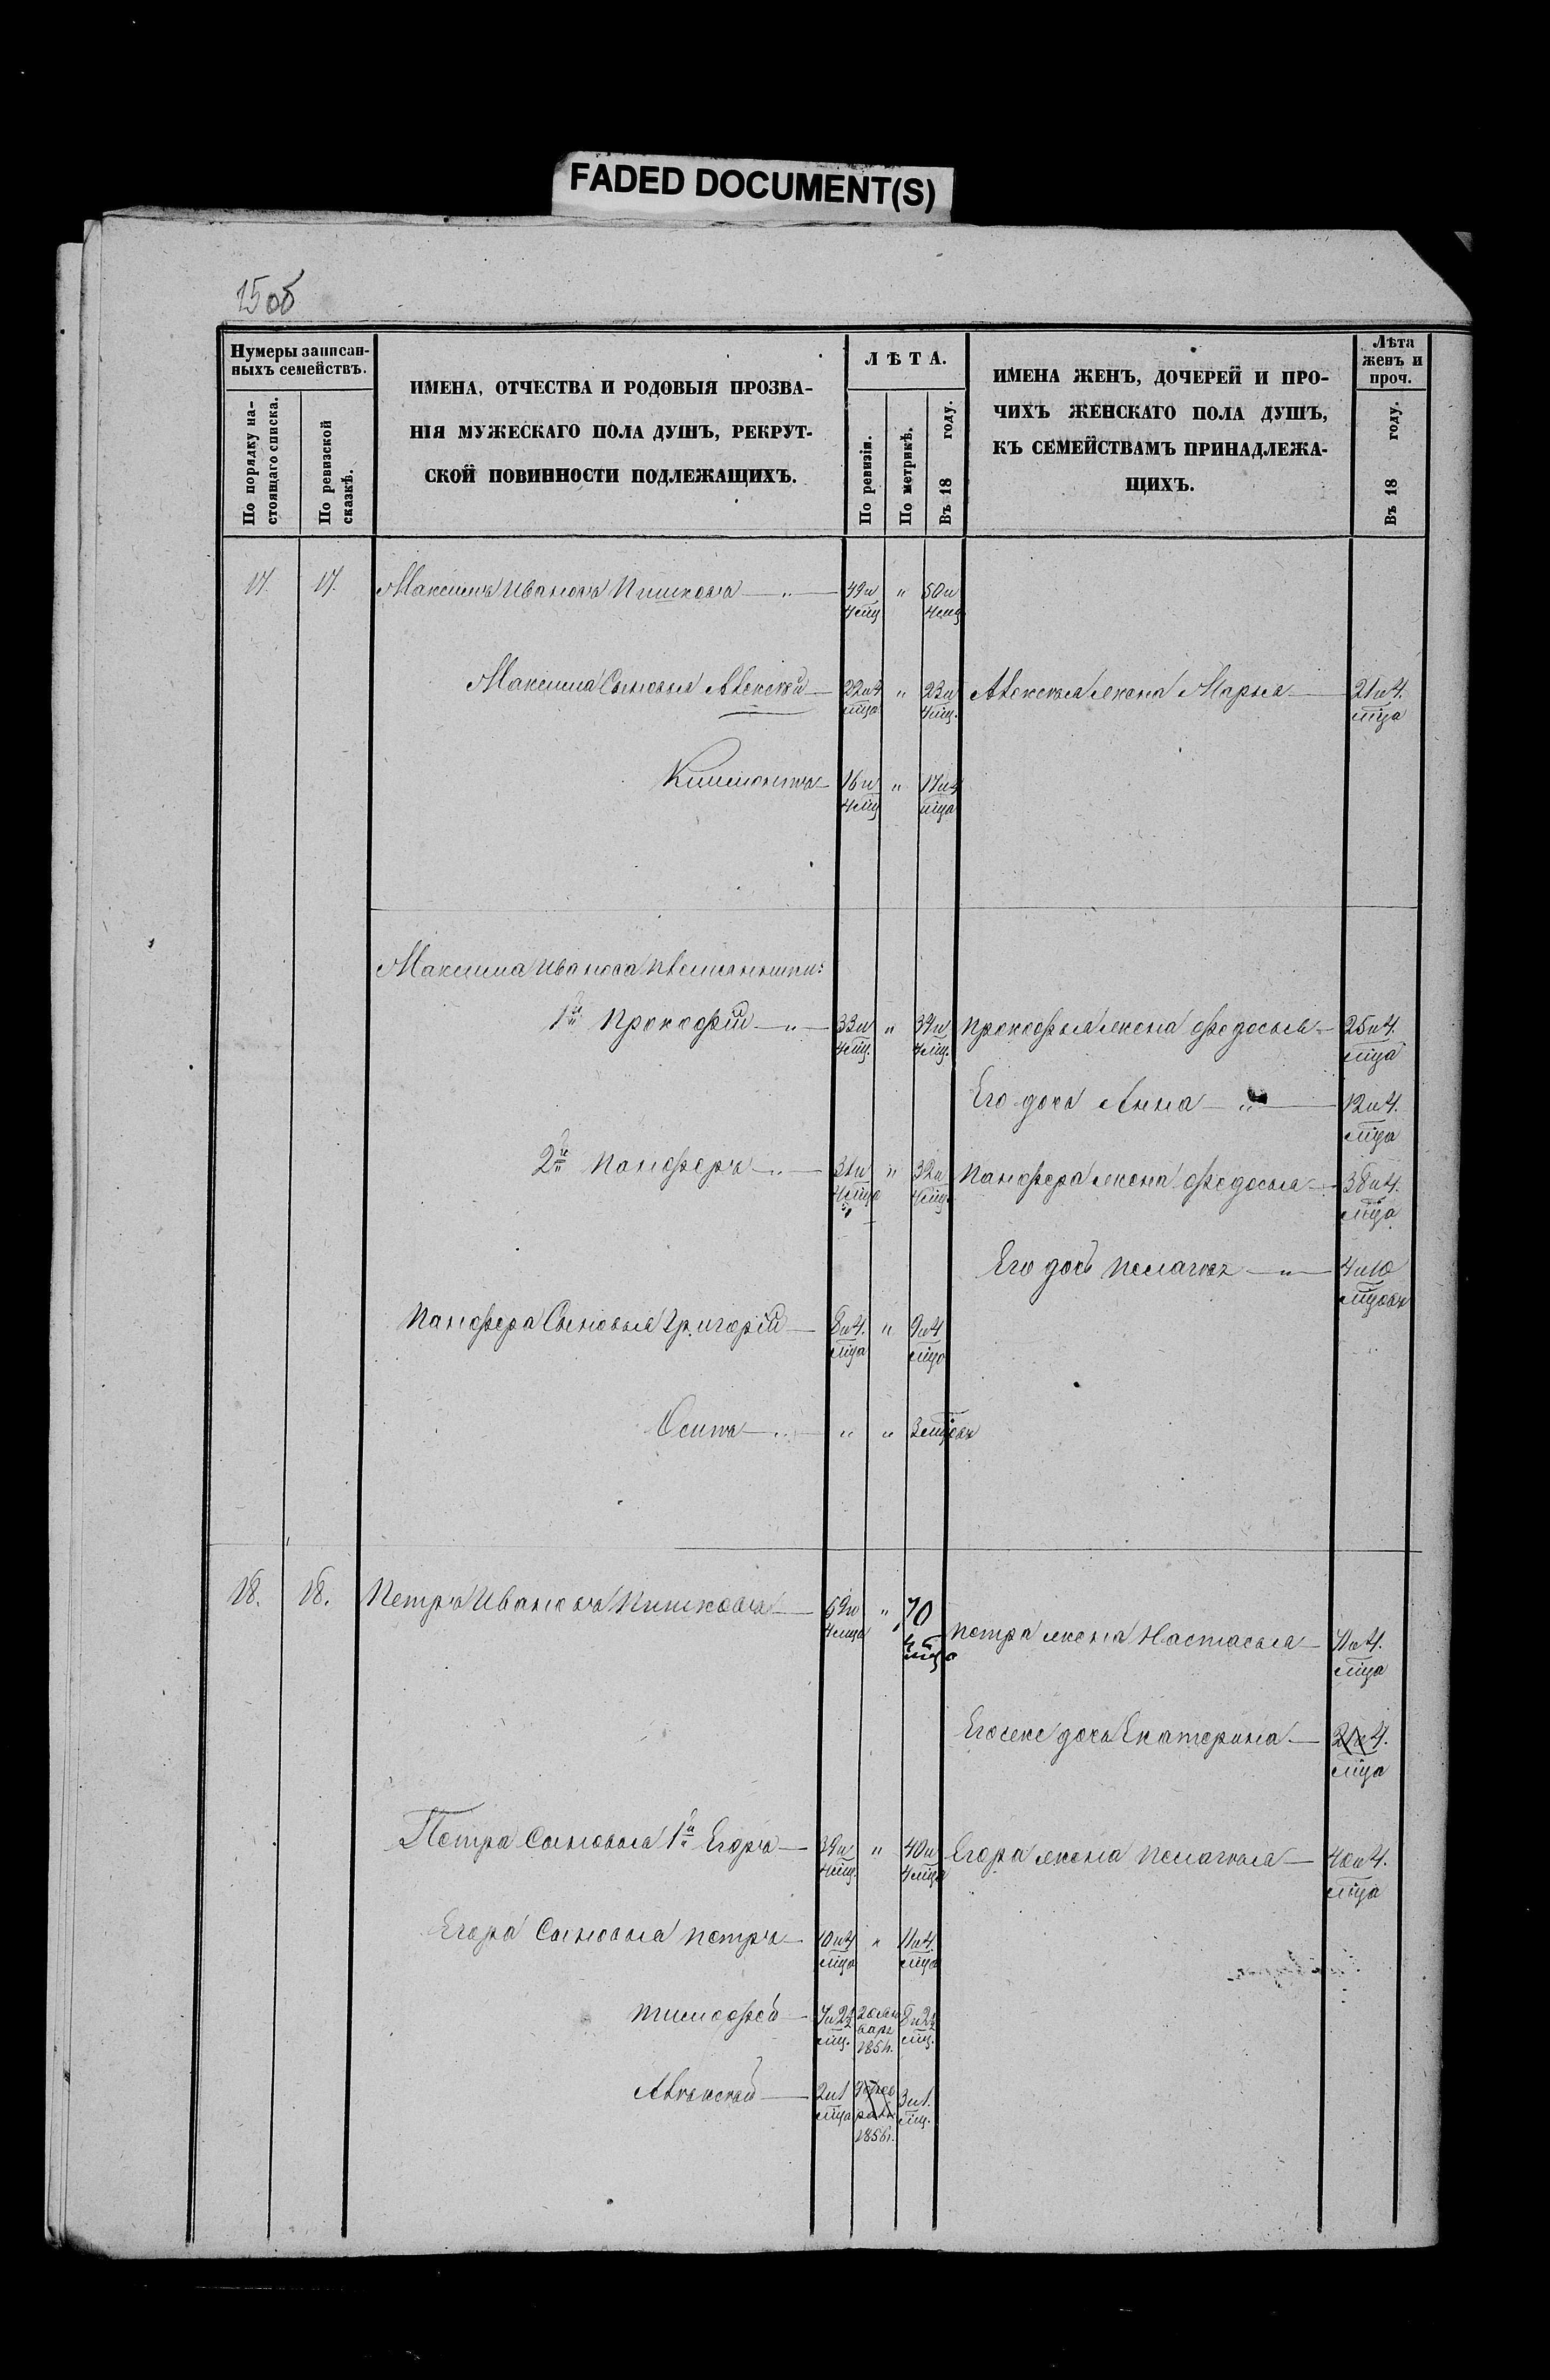 FADED DOCUMENT(S)
15об
Нумеры записан-
ныхъ семействъ.
По порядку на-
стоящаго списка.
По ревизской
сказкѣ.
ИМЕНА, ОТЧЕСТВА И РОДОВЫЯ ПРОЗВА-
НІЯ МУЖЕСКАГО ПОЛА ДУШЪ, РЕКРУТ-
СКОЙ ПОВИННОСТИ ПОДЛЕЖАЩИХЪ.
ЛѢТА.
По ревизіи.
По метрикѣ.
Въ 18 году.
ИМЕНА ЖЕНЪ, ДОЧЕРЕЙ И ПРО-
ЧИХЪ ЖЕНСКАГО ПОЛА ДУШЪ,
КЪ СЕМЕЙСТВАМЪ ПРИНАДЛЕЖА-
ЩИХЪ.
Лѣта
женъ и
проч.
Въ 18 году.
17. 17. Максимъ Ивановъ Пишковъ — " — 49 и " 50 и
4 мц 4 мц
Максима Сыновья Алексѣй — 22 и 4 " 23 и Алексея жена Марья — 21 и 4.
мца 4 мц. мца
Климонтъ — 16 и " 17 и 4
4 мц мца
Максима Иванова племянники:
1й Прокофій — " — 33 и " 34 и Прокофья жена Федосья — 25 и 4.
4 мц. 4 мц. мца
Его дочь Анна — " — 12 и 4.
мца
2й Панферъ — " — 31 и " 32 и Панфера жена Федосья — 38 и 4.
4 мца 4 мц. мца
Его дочь Пелагея — " — 4 и 10
мцовъ
Панфера Сыновья Григорій — 8 и 4. " 9 и 4
мца мца
Осипъ — " — " " 3 мцовъ
18. 18. Петръ Ивановъ Пишковъ — 69 и " 70
4 мца 4 мца
Петра жена Настасья — 71 и 4.
мца
Его же дочь Екатерина — 21 и 4.
мца
Петра Сыновья 1й Егоръ — 39 и " 40 и Егора жена Пелагья — 40 и 4.
4 мц. 4 мца мца
Егора Сыновья Петръ — 10 и 4 " 11 и 4.
мца мца
Тимофей — 7 и 2½ 20 ян 8 и 2½
мц. варя мц.
1851г.
Алексей — 2 и 1 3 и 1.
мца мц.
1856г.